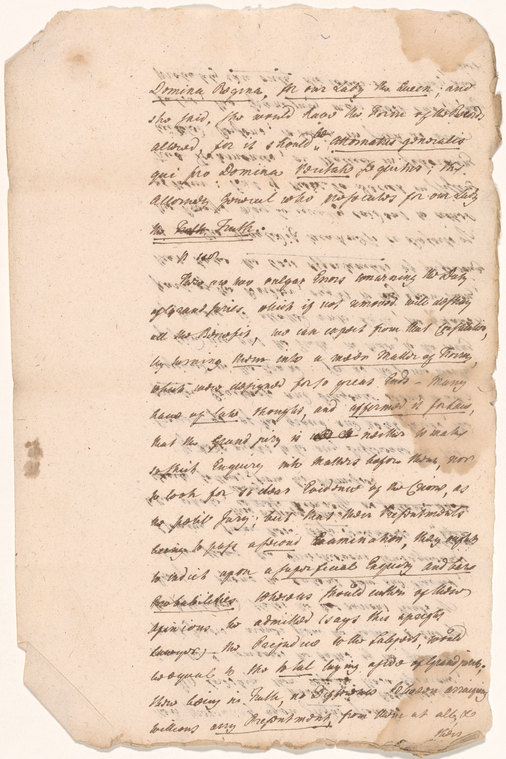 Domina Regina, for our Lady the Queen; and
she said, she would have the Form of the Record
altered, for it should be Attornatus generalis
qui pro Domina Veritate sequitur; the
Attorney General who prosecutes for our Lady
the Truth Truth.
There are two vulgar Errors concerning the Duty
of Grand juries, which if not removed will destroy
all the Benefit, we can expect from that Constitution,
by turning them into a meer Matter of Form,
which were designed for so great Ends – Many
have of late thought, and affirmed it for Law,
that the Grand jury is neither to make
so strict Enquiry into Matters before them, nor
to look for so clear Evidence of the Crime, as
the petit Jury; but that their Presentments
being to pass a second Examination, they ought
to indict upon a superficial Enquiry and bare
Probabilities Whereas should either of these
opinions be admitted (says this upright
Lawyer) the Prejudice to the Subject, would
be equal to the total laying aside of Grand juries,
there being no Truth, no Difference between arraigning
without any Presentment, from them at all, &
their